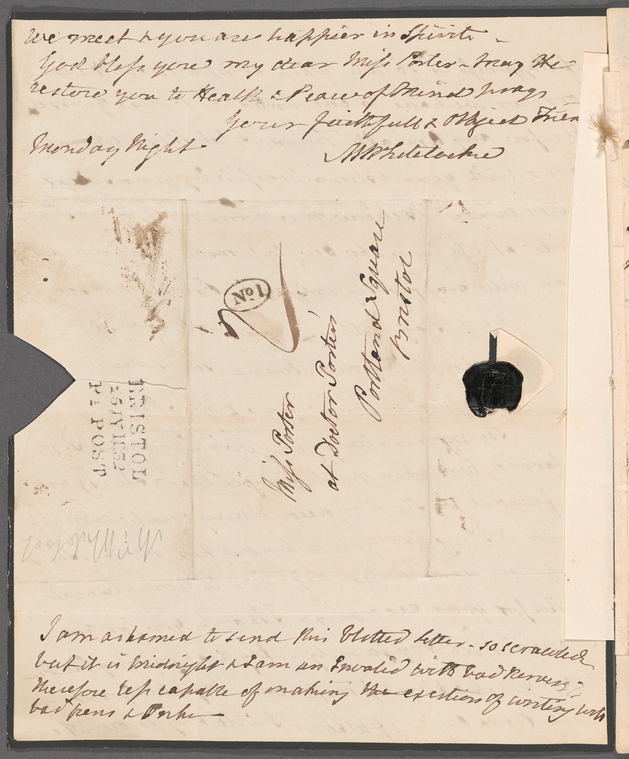 We meet & you are happier in Spirits -
God bless you my dear Miss Porter - may He
restore you to Health & Peace of Mind prays
Your faithfull & Friend
Monday Night M Whitelocke
No. 1
2
Miss Porter
at Doctor Porter's
Portland Square
Bristol
BRISTOL
JY 1832
PY POST
I am ashamed to send this blotted letter - so scrawled
but it is midnight & I am an Invalid with bad Nerves
therefore less capable of making the exertion of writing with
bad pens &